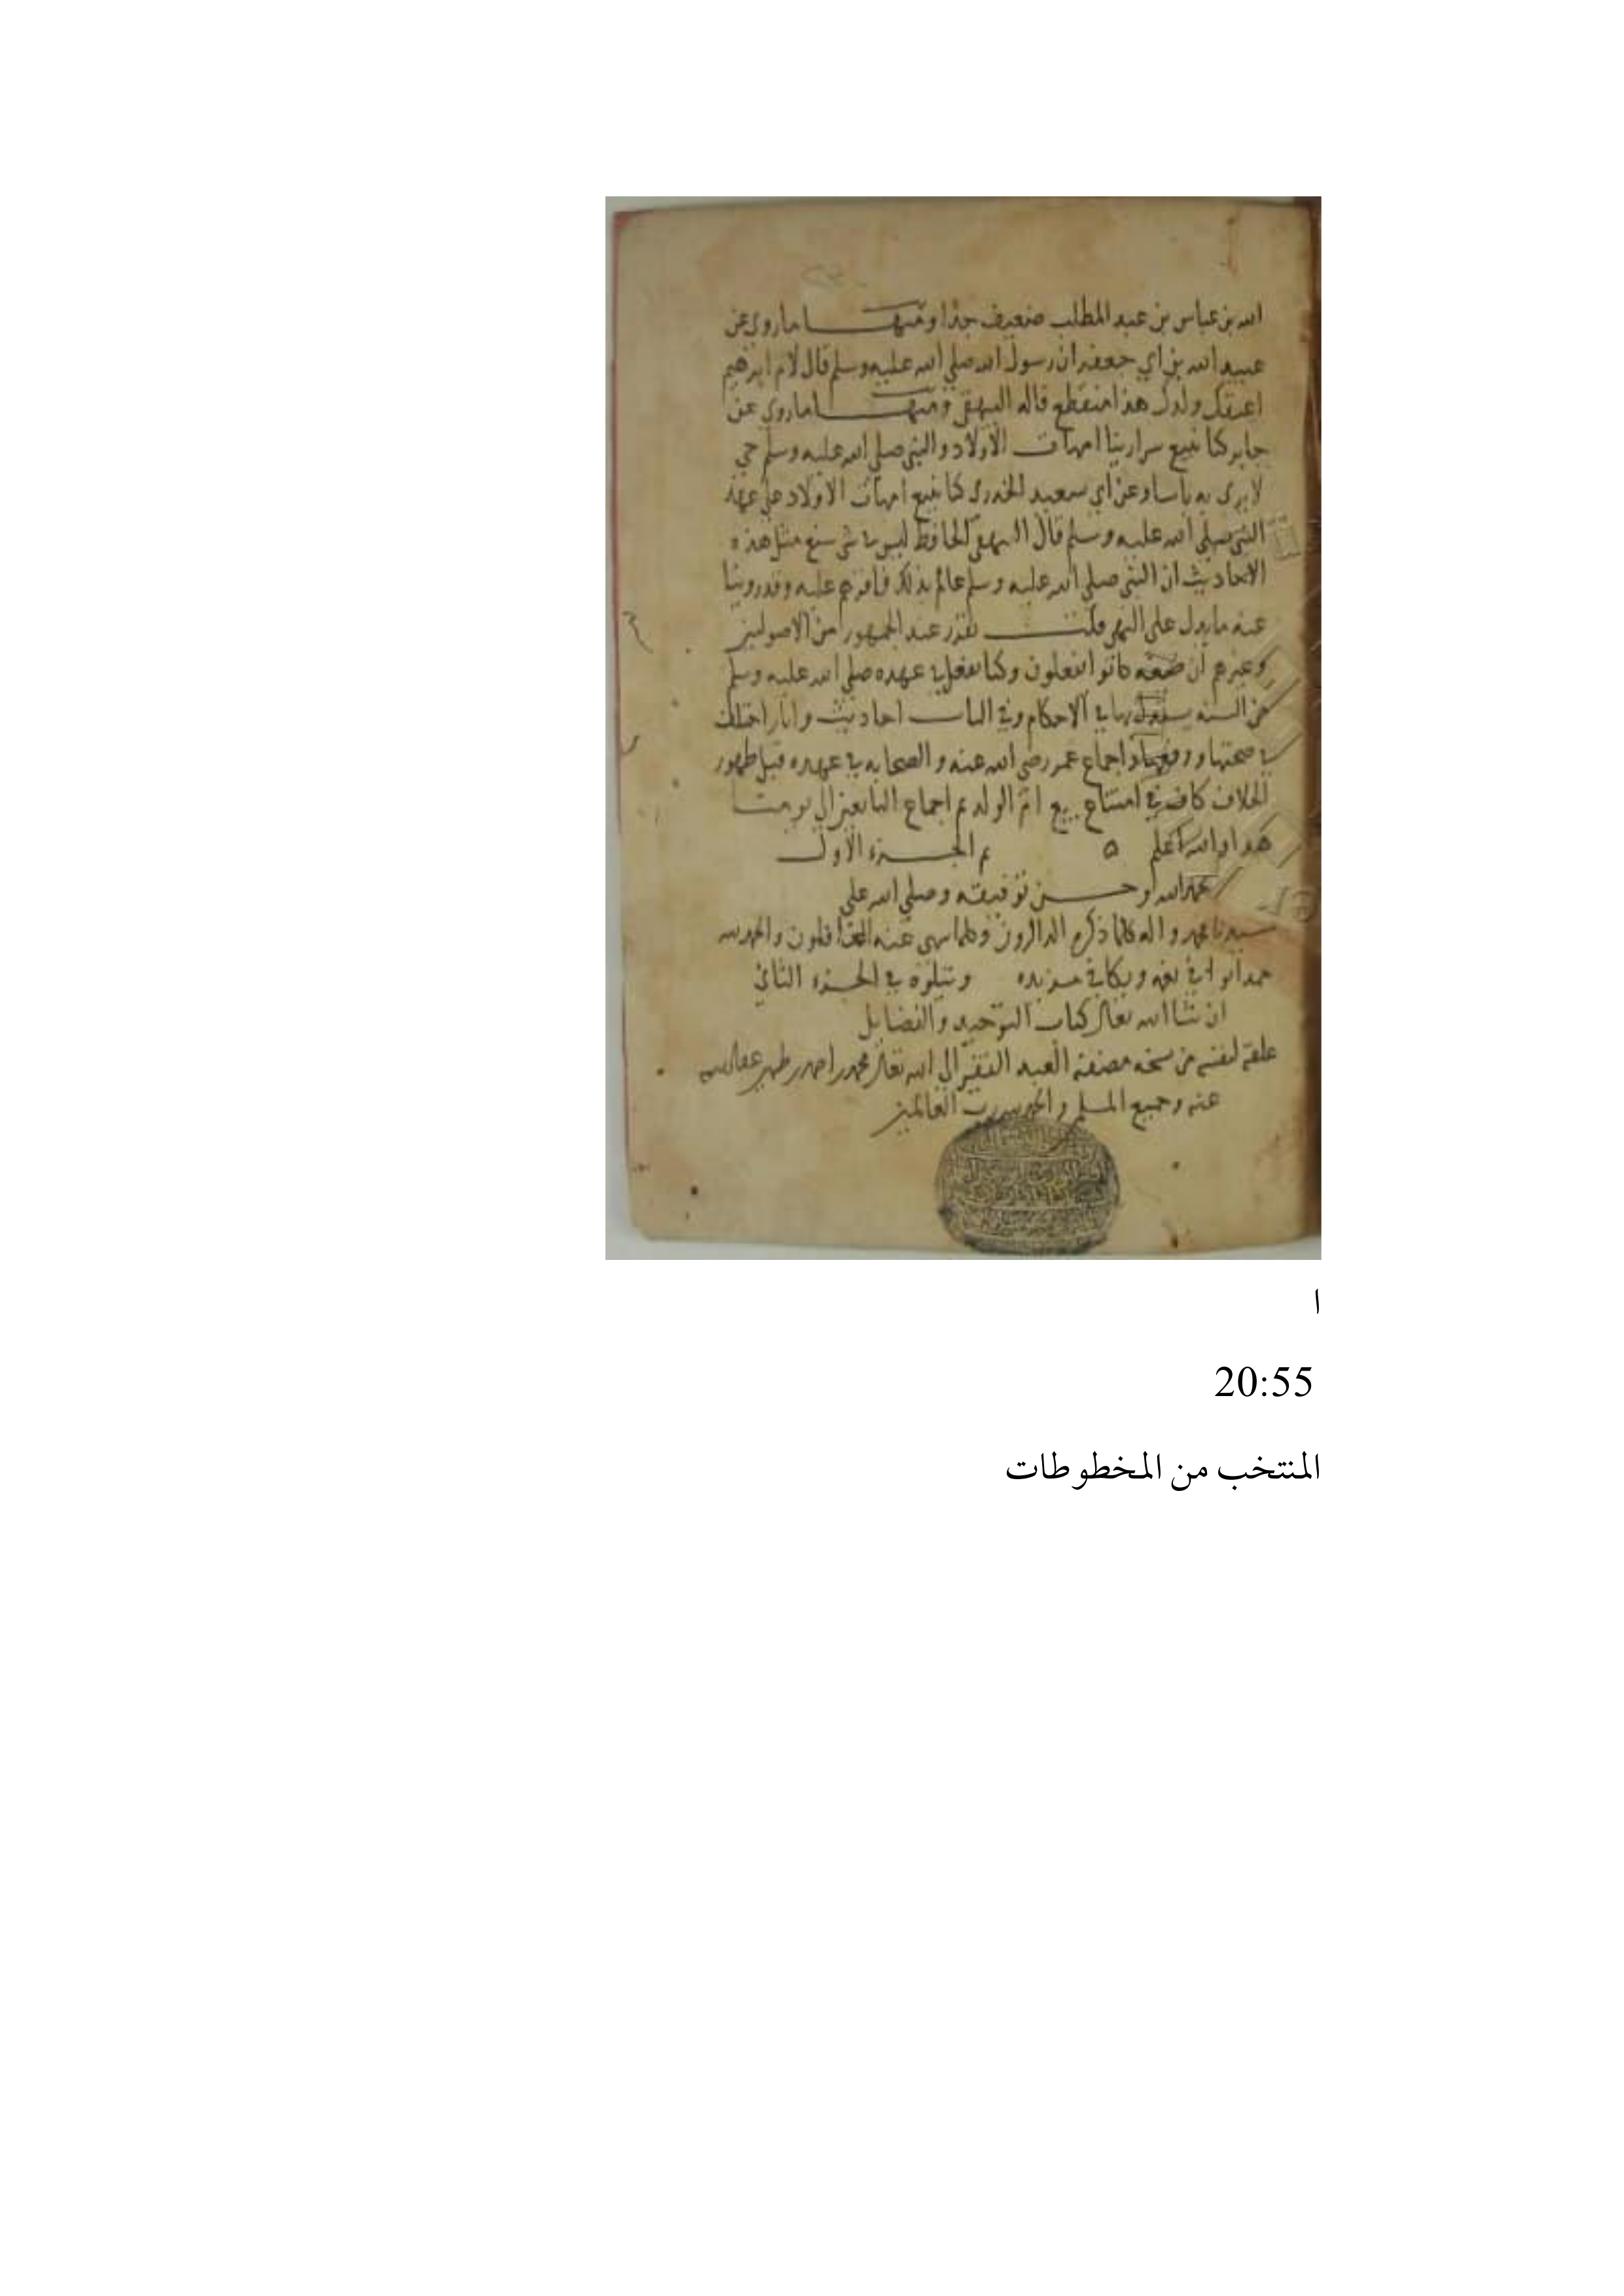 الله بن عباس بن عبد المطلب ضعيف جدا ومنها ماروي عن
عبيد الله بن ابي جعفر ان رسول الله صلى الله عليه وسلم قال لام ابرهيم
اعتقك ولدك هذا منقطع قاله البيهقي ومنها ماروي عن
جابر كنا نبيع سرارينا امهات الاولاد والنبي صلى الله عليه وسلم حي
لا يرى به باسا وعن ابي سعيد الخدري كنا نبيع امهات الاولاد على عهد
النبي صلى الله عليه وسلم قال البيهقي الحافظ ليس في شي منع مثل هذه
الاحاديث ان النبي صلى الله عليه وسلم علم بذلك فاقرهم عليه وقد روينا
عنه ما يدل على النهي قلت تقرر عند الجمهور من الاصوليين
وغيرهم ان كانوا يفعلون وكنا نفعل في عهده صلى الله عليه وسلم
من السنه في الاحكام وفي الباب احاديث واثار اختلف
في صحتها ورفعها واجماع عمر رضي الله عنه والصحابه في عهده قبل ظهور
الخلاف كاف في امتناع بيع ام الولد ثم اجماع التابعين الى يومنا
هذا والله اعلم تم الجزء الاول
بحمد الله وحسن توفيقه وصلى الله على
سيدنا محمد واله كلما ذكره الذاكرون وكلما سهى عنه الغافلون والحمد لله
حمدا يوافي نعمه ويكافي مزيده ويتلوه في الجزء الثاني
ان شا الله تعالى كتاب التوحيد والفضايل
علقه لنفسه من نسخه مصنفه العبد الفقير الى الله تعالى محمد بن احمد بن ظهير عفا الله
عنه وجميع المسلمين والحمد لله رب العالمين
ا
20:55
المنتخب من المخطوطات